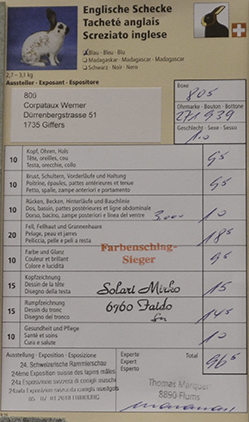 Englische Schecke
Tacheté anglais
Screziato inglese
Blau - Bleu - Blu
Madagaskar - Madagascar - Madagascar
Schwarz - Noir - Nero
2,7 – 3,1 kg
Aussteller - Exposant - Espositore
Boxe
805
800
Corpataux Werner
Dürrenbergstrasse 51
1735 Giffers
Ohrmarke - Bouton - Bottone
Geschlecht - Sexe - Sesso
1.0
10 Kopf, Ohren, Hals
Tête, oreilles, cou
Testa, orecchie, collo
95
10 Brust, Schultern, Vorderläufe und Haltung
Poitrine, épaules, pattes antérieures et tenue
Petto, spalle, zampe anteriori e portamento
95
10 Rücken, Becken, Hinterläufe und Bauchlinie
Dos, bassin, pattes postérieures et ligne abdominale
Dorso, bacino, zampe posteriori e linea del ventre
10
20 Fell, Fellhaut und Grannenhaare
Pelage, peau et jarres
Pelliccia, pelle e peli a resta
185
10 Farbe und Glanz
Couleur et brillant
Colore e lucidità
Farbenschlag-
Sieger
95
15 Kopfzeichnung
Dessin de la tête
Disegno della testa
Solari Mirko
15
15 Rumpfzeichnung
Dessin du tronc
Disegno del tronco
6760 Faido
145
10 Gesundheit und Pflege
Santé et soins
Cura e salute
10
Ausstellung - Exposition - Esposizione
Experte
Expert
Esperto
Total
965
24. Schweizerische Rammlerschau
24ème Exposition suisse des lapins mâles
24a Esposizione svizzera di conigli maschi
Thomas Marquart
8890 Flums